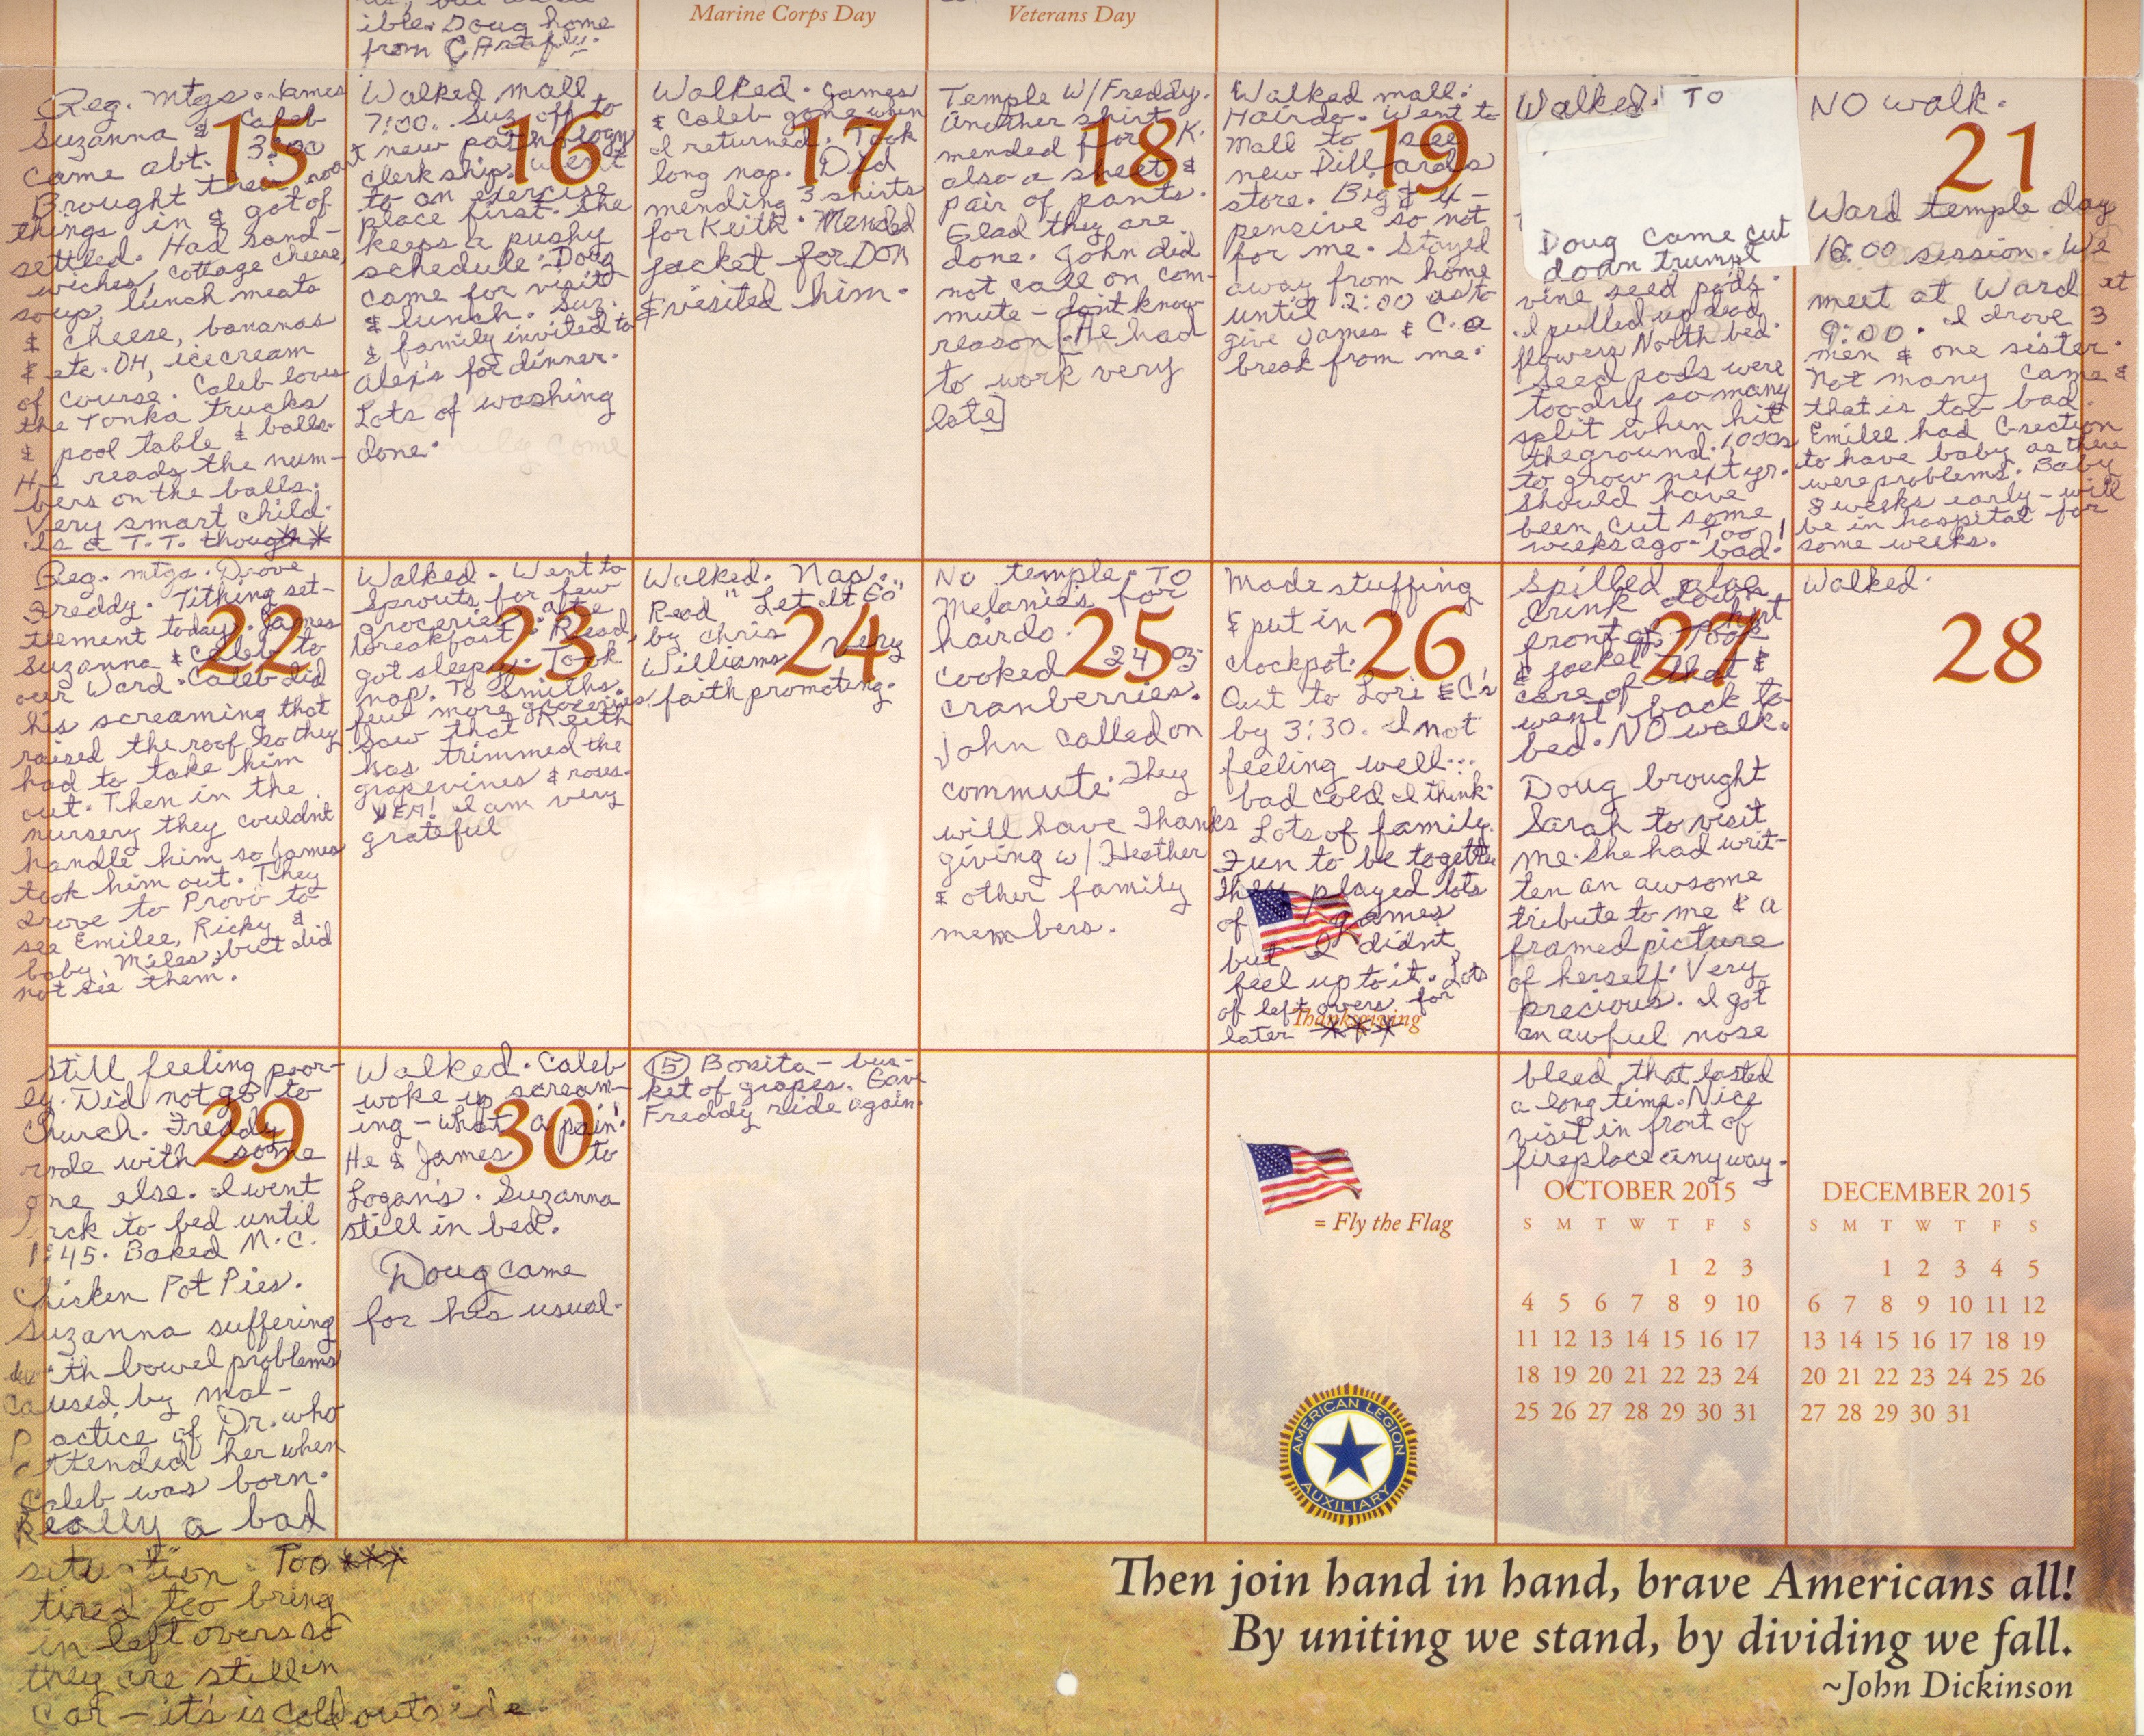 ible. Doug home
from
Marine Corps Day
Veterans Day
15
Reg. mtgs. James
Suzanna & Caleb
came abt. 3:00
Brought their
things in & got
settled. Had sand-
wiches, cottage cheese,
soup, lunch meats
& cheese, bananas
& etc. OH, icecream
of course. Caleb loves
the Tonka trucks
& pool table & balls.
He reads the num-
bers on the balls.
Very smart child.
Is a T.T. though**
16
Walked mall
7:00. Suz. off to
new pathology
clerkship. went
to an exercise
place first. She
keeps a pushy
schedule. Doug
came for visit
& lunch. Suz.
& family invited to
Alex's for dinner.
Lots of washing
done.
17
Walked. James
& Caleb gone when
I returned. Took
long nap. Did
mending 3 shirts
for Keith. Mended
jacket for DON
& visited him.
18
Temple W/Freddy.
Another shirt
mended for K.
also a sheet &
pair of pants.
Glad they are
done. John did
not call on com-
mute - don't know
reason [He had
to work very
late]
19
Walked mall.
Hairdo. Went to
mall to see
new Dillards
store. Big & x-
pensive so not
for me. Stayed
away from home
until 2:00 as to
give James & C. a
break from me.
20
Walked! TO
Doug came cut
down trumpt
vine seed pods.
I pulled up dead
flowers North bed.
Seed pods were
too dry so many
split when hit
theground. 1,000s
to grow next yr.
Should have
been cut some
weeks ago - Too
bad!
21
NO walk.
Ward temple day
10:00 session. We
meet at Ward at
9:00. I drove 3
men & one sister.
Not many came &
that is too bad.
Emilee had C-section
to have baby as there
were problems. Baby
8 weeks early - will
be in hospital for
some weeks.
22
Reg. mtgs. Drove
Freddy. Tithing set-
tlement today. James
Suzanna & Caleb to
our Ward. Caleb did
his screaming that
raised the roof so they
had to take him
out. Then in the
nursery they couldnt
handle him so James
took him out. They
drove to Provo to
see Emilee, Ricky &
baby, Miles, but did
not see them.
23
Walked. Went to
Sprouts for few
groceries after
breakfast. Read,
got sleepy. Took
nap. To Smiths.
few more groceries.
Saw that Keith
has trimmed the
grapevines & roses.
YEA! I am very
grateful
24
Walked. Nap.
Read "Let It Go"
by Chris
Williams Very
faith promoting.
25
No temple. TO
Melanie's for
hairdo.
cooked 24 oz
cranberries.
John called on
commute. They
will have Thanks
giving w/ Heather
& other family
members.
26
Made stuffing
& put in
crockpot.
Out to Lori & C's
by 3:30. I not
feeling well...
bad cold I think.
Lots of family.
Fun to be together
They played lots
of games
but I didnt
feel up to it. Lots
of left overs for
later ***
Thanksgiving
27
Spilled aloe
drink down
front of shirt
& jacket. Took
care of that &
went back to
bed. NO walk.
Doug brought
Sarah to visit
me. She had writ-
ten an awsome
tribute to me & a
framed picture
of herself. Very
precious. I got
an awful nose
bleed that lasted
a long time. Nice
visit in front of
fireplace anyway.
28
Walked.
29
Still feeling poor-
ly. Did not go to
Church. Freddy
rode with some
one else. I went
back to bed until
1:45. Baked M.C.
Chicken Pot Pies.
Suzanna suffering
with bowel problems
caused by mal-
practice of Dr. who
attended her when
Caleb was born.
Really a bad
situation. Too ***
tired too bring
in left overs so
they are still in
car - it's is cold outside.
30
Walked. Caleb
woke up scream-
ing - what a pain!
He & James to
Logan's. Suzanna
still in bed.
Doug came
for his usual.
(15) Bonita - bus-
ket of grapes. Gave
Freddy ride again.
= Fly the Flag
AMERICAN LEGION
AUXILIARY
OCTOBER 2015
S M T W T F S
1 2 3
4 5 6 7 8 9 10
11 12 13 14 15 16 17
18 19 20 21 22 23 24
25 26 27 28 29 30 31
DECEMBER 2015
S M T W T F S
1 2 3 4 5
6 7 8 9 10 11 12
13 14 15 16 17 18 19
20 21 22 23 24 25 26
27 28 29 30 31
Then join hand in hand, brave Americans all!
By uniting we stand, by dividing we fall.
~John Dickinson